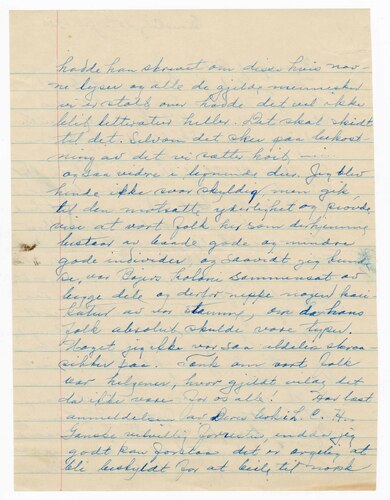 hadde han skrevet om disse hvis nav-
ne lyser og alle de gjilde mennesker
vi er stolt over hadde det vel ikke
blit litteratur heller. Det skal skidt
til det. Selvom det sker paa bekost
ning av det vi satter høit, —
og saa videre i lignende dur. Jeg blev
hende ikke svar skyldig men gik
til den motsatte yderlighet og prøvde
vise at vort folk her som derhjemme
bestaar av baade gode og mindre
gode individer og saavidt jeg kun
de se, var kolonie sammensat av
begge dele og derfor neppe nogen kari
katur av vor stamme, om hans
folk absolut skulde være typer.
Noget jeg ikke var saa aldeles skraa-
sikker paa. Tenk om vort folk
var helgener, hvor gjildt vilde det
da ikke være for os alle! Har læst
anmeldelsen av Deres bok i L. C. H.
Ganske utvillig forresten, endda jeg
godt kan forstaa det er ærgelig at
bli beskyldt for at beile til norsk